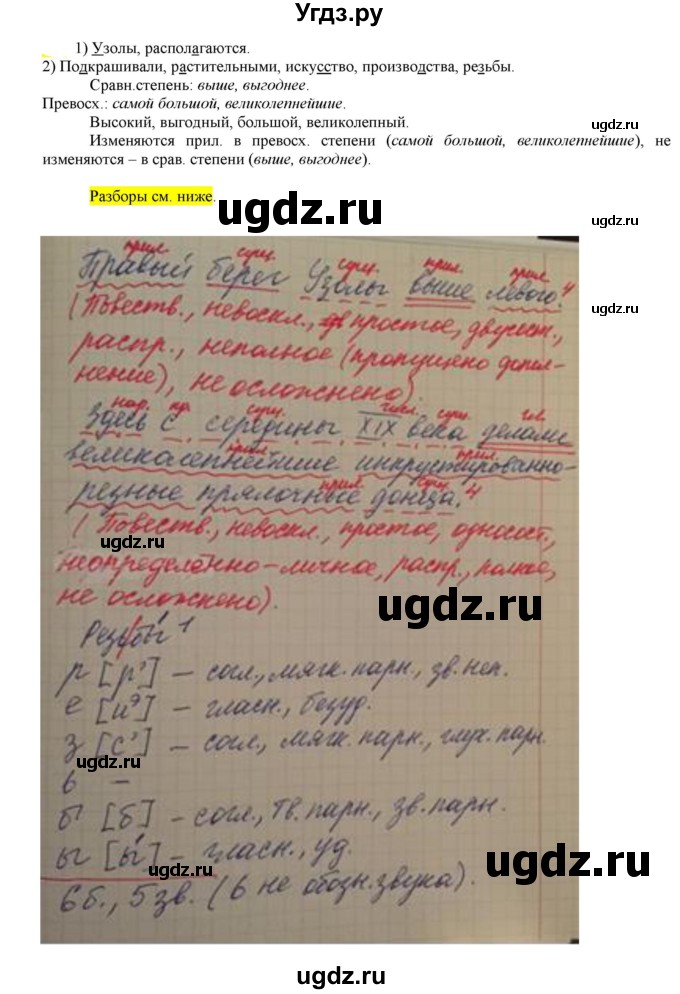 Угдз.ру
1) Узолы, располагаются.
2) Подкрашивали, растительными, искусство, производства, резьбы.
Сравн.степень: выше, выгоднее.
Превосх.: самой большой, великолепнейшие.
Высокий, выгодный, большой, великолепный.
Изменяются прил. в превосх. степени (самой большой, великолепнейшие), не
изменяются – в срав. степени (выше, выгоднее).
Разборы см. ниже.
прил. сущ. сущ. прил. прил.
Правый берег Узолы выше левого.4
(Повеств., невоскл., простое, двусост.,
распр., неполное (пропущено допол-
нение), не осложнено).
нар. пр. сущ. числ. сущ. гл.
Здесь с середины XIX века делали
прил. прил.
великолепнейшие инкрустированно-
прил. сущ.
резные прялочные донца.4
(Повеств., невоскл., простое, односост.,
неопределённо-личное, распр., полное,
не осложнено).
Резьбы1
р [р'] – согл., мягк. парн., зв. неп.
е [иэ] – гласн., безуд.
з [с'] – согл., мягк. парн., глух. парн.
ь –
б [б] – согл., тв. парн., зв. парн.
ы [ы] – гласн., уд.
6 б., 5 зв. (ь не обозн. звука).
ugdz.ru
ugdz.ru
ugdz.ru
ugdz.ru
ugdz.ru
ugdz.ru
ugdz.ru
ugdz.ru
ugdz.ru
ugdz.ru
ugdz.ru